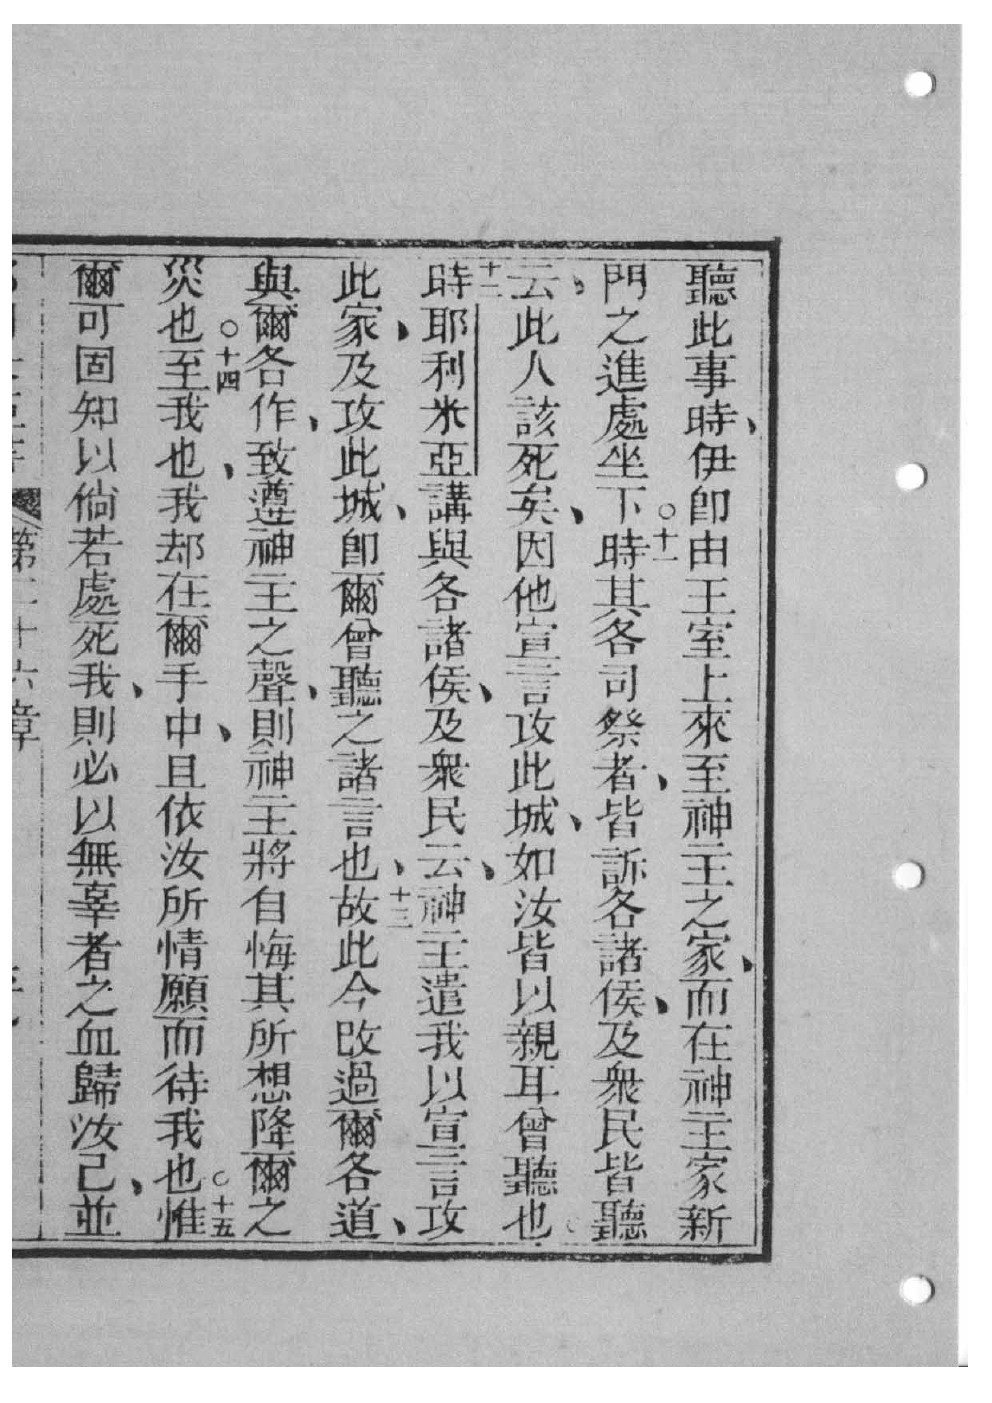 聽此事時、伊卽由王室上來至神主之家、而在神主家新
門之進處坐下○十一時其各司祭者、皆訴各諸侯、及衆民皆聽、
云此人該死矣、因他宣言攻此城、如汝皆以親耳曾聽也○
十二時耶利米亞講與各諸侯、及衆民云、神主遣我以宣言攻
此家、及攻此城、卽爾曾聽之諸言也、十三故此今改過爾各道、
與爾各作、致遵神主之聲、則神主將自悔其所想降爾之
災也○十四至我也、我却在爾手中、且依汝所情願而待我也○十五惟
爾可固知以倘若處死我、則必以無辜者之血歸汝己、並
第二十六章